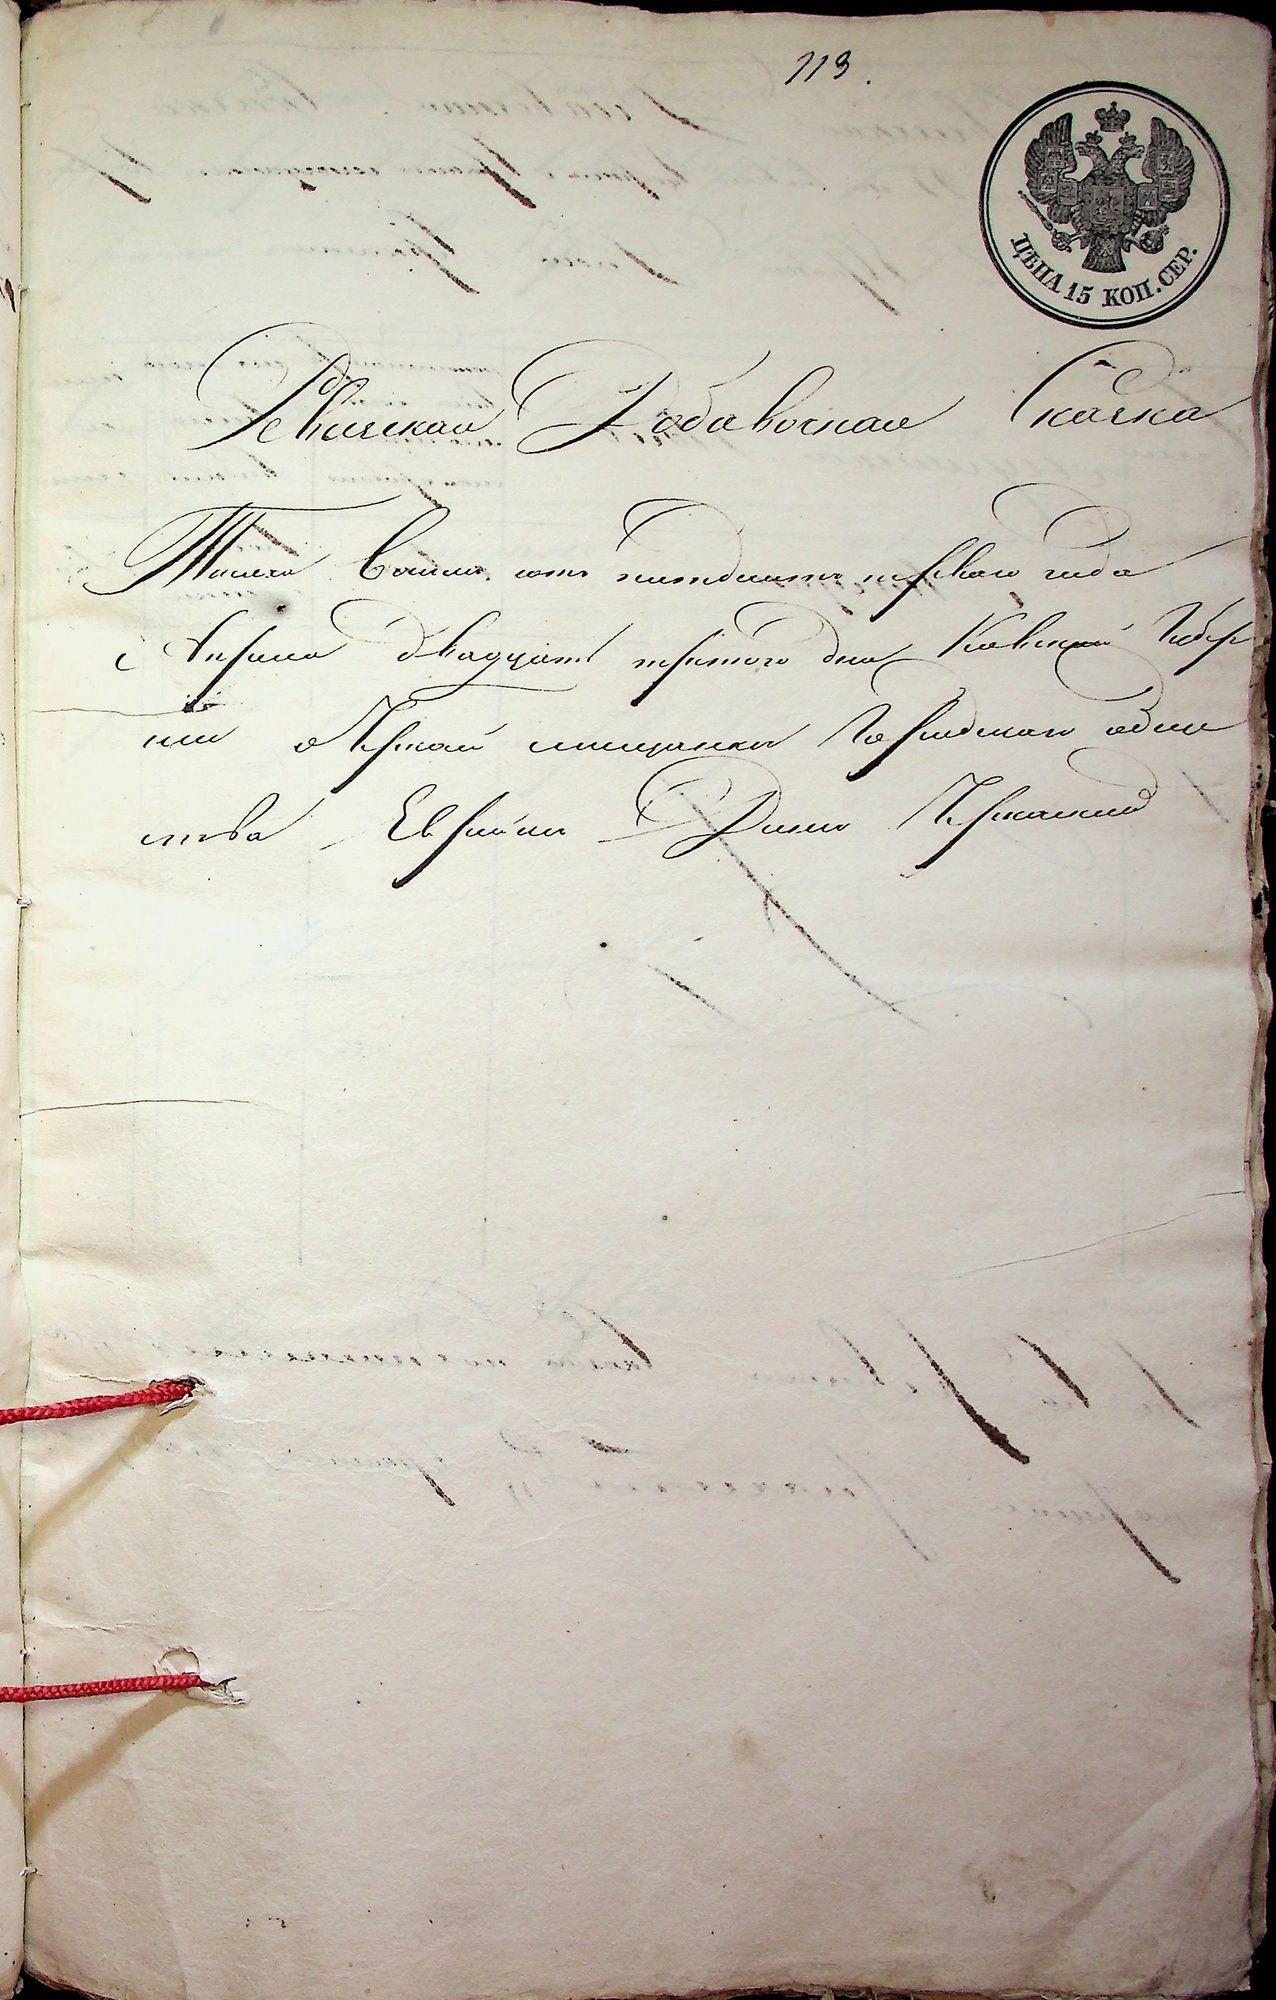 113.
ЦѢНА 15 КОП. СЕР.
Ревизская Добавочная Скаска
Тысяча восемь сотъ пятдесятъ перваго года
Апреля двадцать третого дня Киевской Губер
нии о мещанахъ Городскаго обще
ства Евреяхъ